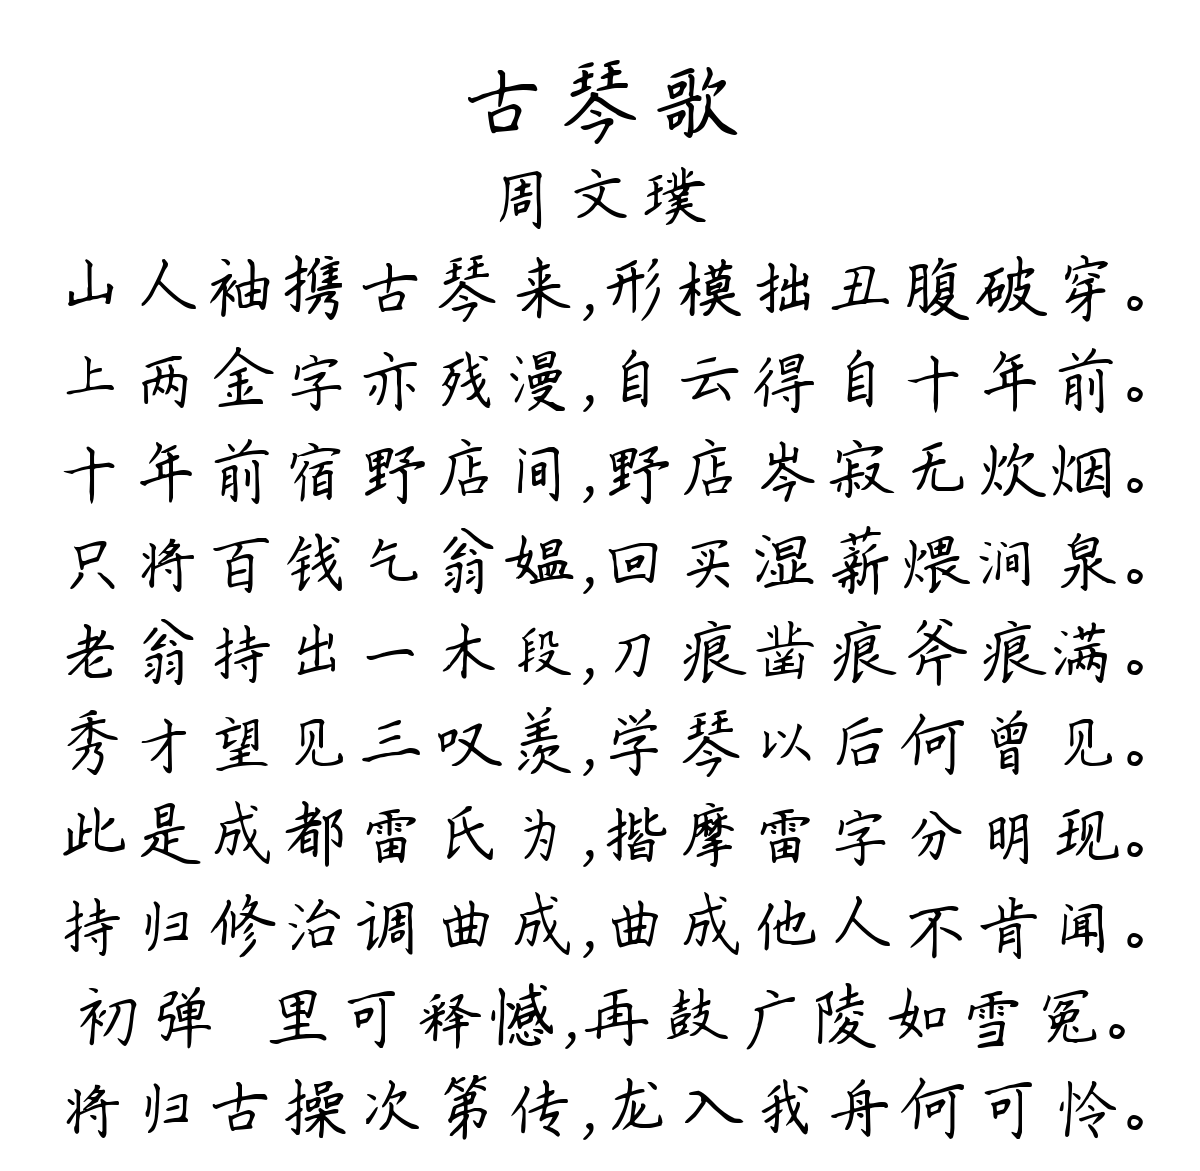 古琴歌
周文璞
山人袖携古琴来,形模拙丑腹破穿。
上两金字亦残漫,自云得自十年前。
十年前宿野店间,野店岑寂无炊烟。
只将百钱乞翁媪,回买湿薪煨涧泉。
老翁持出一木段,刀痕凿痕斧痕满。
秀才望见三叹羡,学琴以后何曾见。
此是成都雷氏为,揩摩雷字分明现。
持归修治调曲成,曲成他人不肯闻。
初弹 里可释憾,再鼓广陵如雪冤。
将归古操次第传,龙入我舟何可怜。